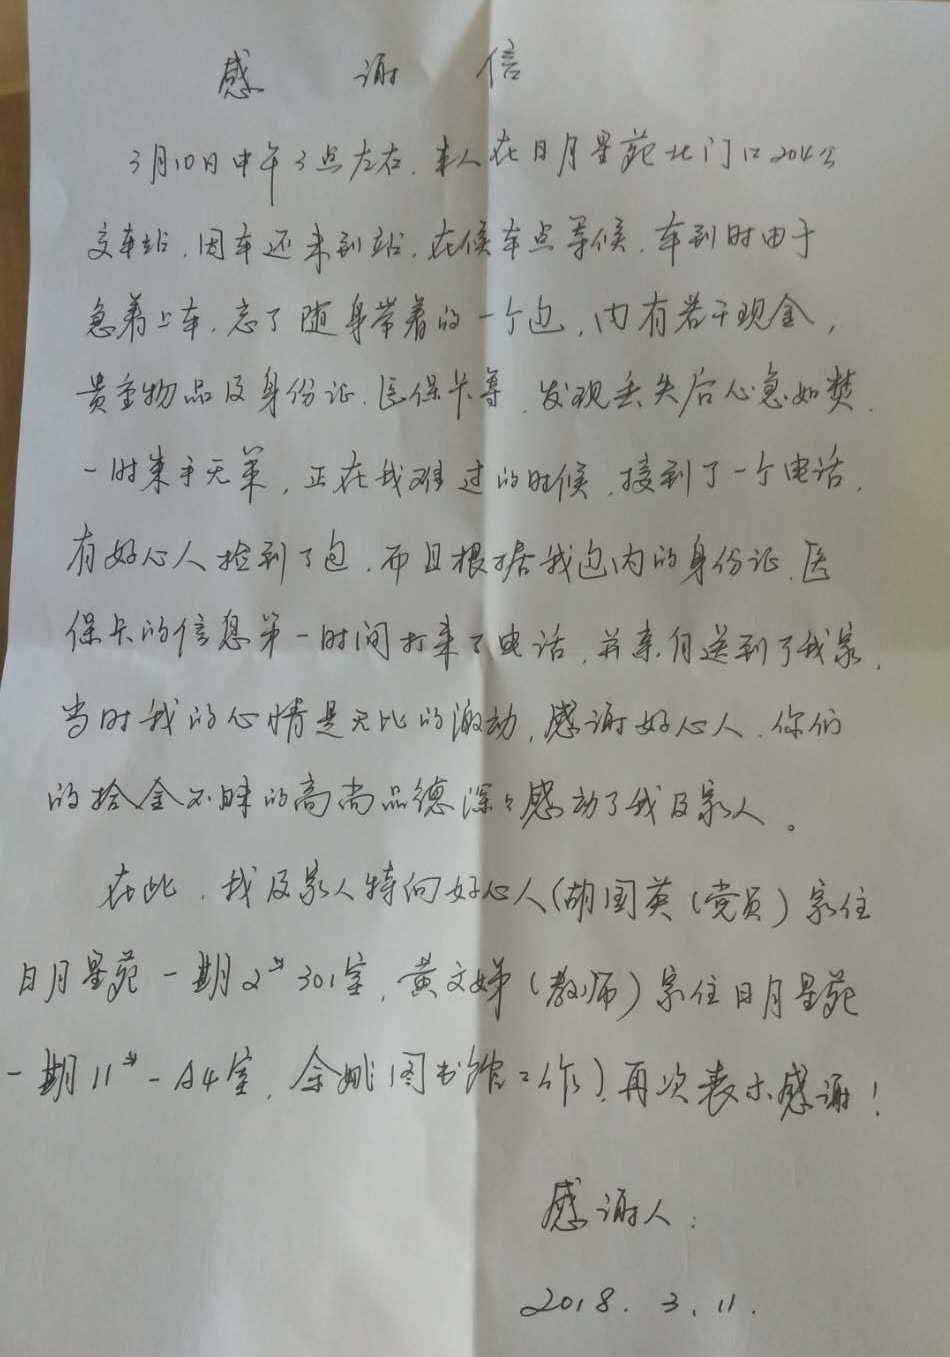 感谢信
3月10日中午3点左右，本人在日月星苑北门口204公
交车站，因车还未到站，在候车点等候，车到时由于
急着上车，忘了随身带着的一个包，内有若干现金，
贵重物品及身份证、医保卡等，发现丢失后心急如焚，
一时束手无策，正在我难过的时候，接到了一个电话，
有好心人捡到了包，而且根据我包内的身份证、医
保卡的信息第一时间打来了电话，并亲自送到了我家，
当时我的心情是无比的激动，感谢好心人，你们
的拾金不昧的高尚品德深々感动了我及家人。
在此，我及家人特向好心人（胡国英（党员）家住
日月星苑一期2# 301室，黄文娣（教师）家住日月星苑
一期11#-A4室，余姚图书馆工作）再次表示感谢！
感谢人：
2018.3.11.